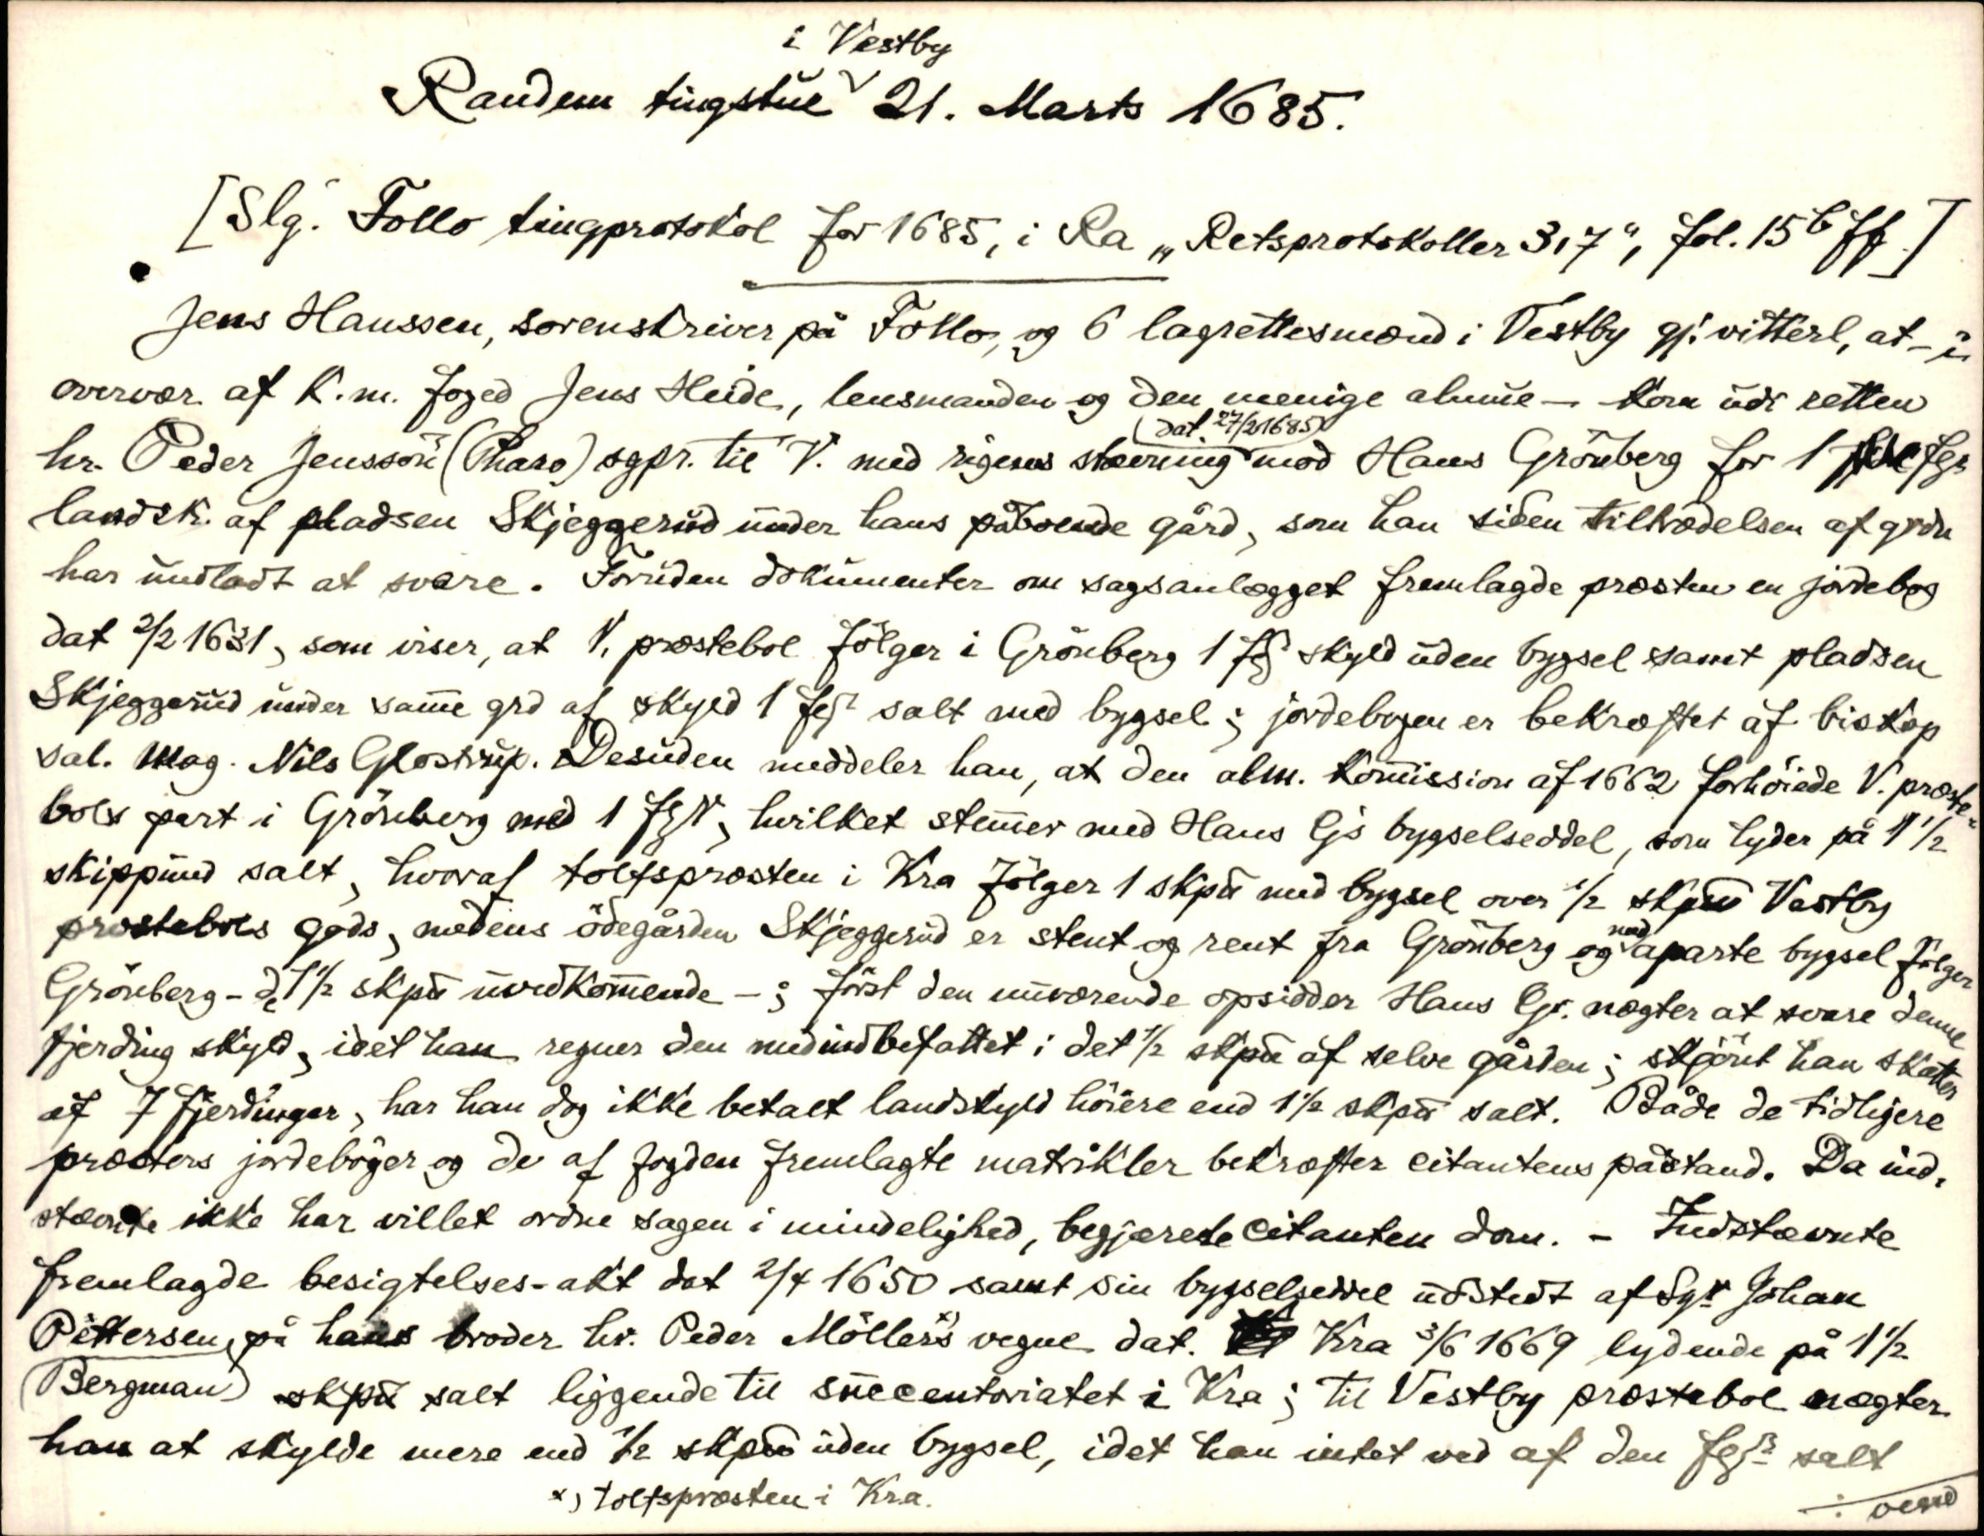 i Vestby
Randem tingstue 21. Marts 1685.
[Slg. Follo tingprotokol for 1685, i Ra „Retsprotokoller 317", fol. 15 b ff.]
Jens Hanssen, sorenskriver på Follo, og 6 lagrettesmænd i Vestby gj. vitterl, at – i
overvær af K. m. foged Jens Heide, lensmanden og den menige almue – kom udi retten
(dat. 27/2 1685)
hr. Peder Jenssön (Pharo) sgpr. til V. med rigens stævning mod Hans Grönberg for 1 fjs
landsk. af pladsen Skjeggerud under hans påboende gård, som han siden tiltrædelsen af grdn
har undladt at svare. Foruden dokumenter om sagsanlægget fremlagde præsten en jordebog
dat 2/2 1631, som viser, at V. præstebol fölger i Grönberg 1 fjr skyld uden bygsel samt pladsen
Skjeggerud under samme grd af skyld 1 fjr salt med bygsel; jordebogen er bekræftet af biskop
sal. Mag. Nils Glostrup. Desuden meddeler han, at den alm. kommission af 1662 forhöiede V. præste-
bols part i Grönberg med 1 fjr, hvilket stemmer med Hans Gjs bygselseddel, som lyder på 1 1/2
skippund salt, hvoraf toltspræsten i Kra fölger 1 skpu med bygsel over 1/2 skpu Vestby
præstebols gods, medens ödegården Skjeggerud er stent og rent fra Grönberg og med aparte bygsel fölger
Grönberg – de 1 1/2 skpu uvedkommende –; först den nuværende opsidder Hans Gr. nægter at svare denne
fjerding skyld, idet han regner den medindbefattet i det 1/2 skpu af selve gården; skjönt han skatter
af 7 fjerdinger, har han dog ikke betalt landskyld höiere end 1 1/2 skpu salt. Både de tidligere
præsters jordeböger og de af fogden fremlagte matrikler bekræfter citantens påstand. Da ind-
stævnte ikke har villet ordne sagen i mindelighed, begjærede citanten dom. – Indstævnte
fremlagde besigtelses-akt dat 2/4 1650 samt sin bygselseddel udstedt af Sgr Johan
Pittersen, på hans broder hr. Peder Möllers x) vegne dat. Kra 3/6 1669 lydende på 1 1/2
(Bergman) skpu salt liggende til succentoriatet i Kra; til Vestby præstebol nægter
han at skylde mere end 1/2 skpu uden bygsel, idet han intet ved af den fjr salt
x) toltspræsten i Kra.
∴ vend